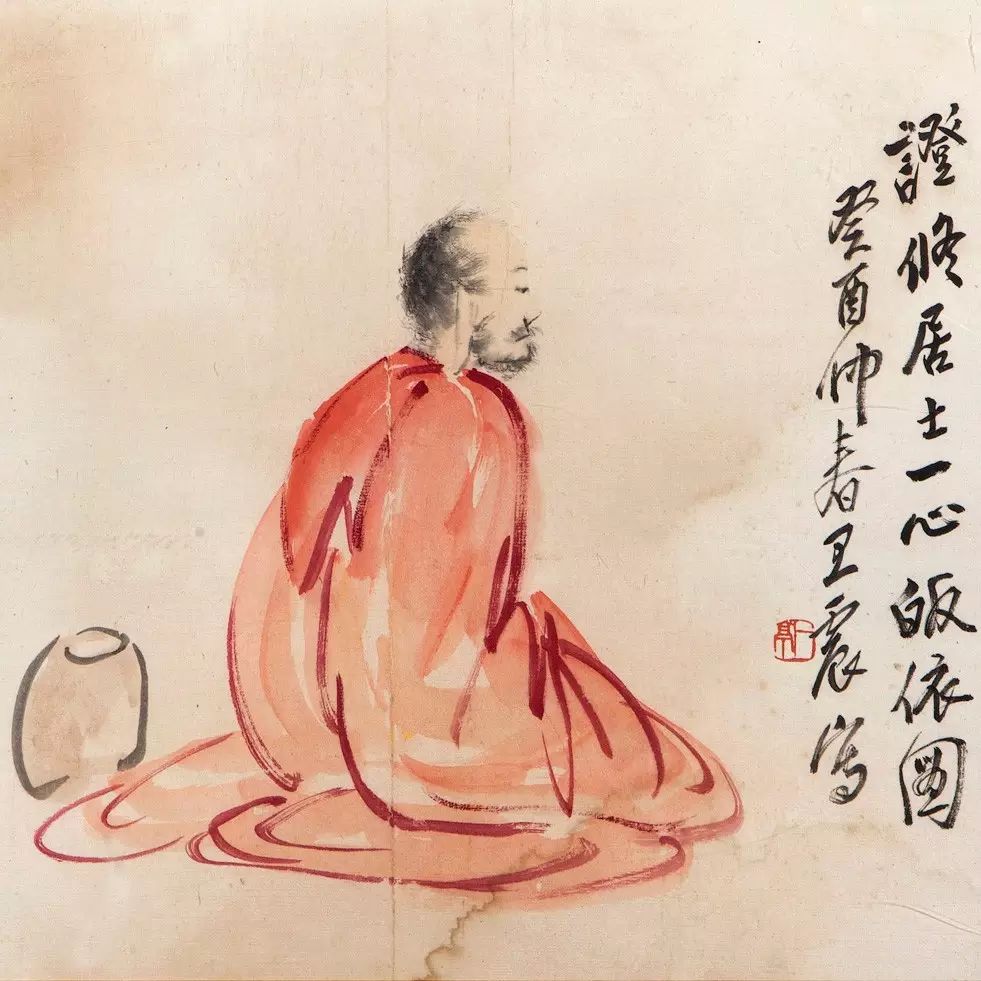 證修居士一心皈依圖
癸酉仲春王震寫